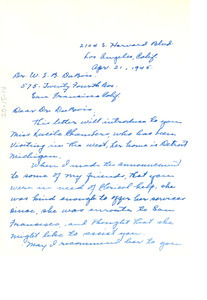 2104 S. Harvard Blvd.
Los Angeles, Calif.
Apr. 21, 1945
Dr. W. E. B. DuBois
575 Twenty Fourth Ave.
San Francisco Calif.
Dear Dr. DuBois,
This letter will introduce to you
Miss Lucille Chambers, who has been
visiting in the west, her home is Detroit
Michigan.
When I made the announcement
to some of my friends, that you
were in need of Clerical help, she
was kind enough to offer her services
since, she was enroute to San
Francisco, and thought that she
might like to assist you.
May I recommend her to you